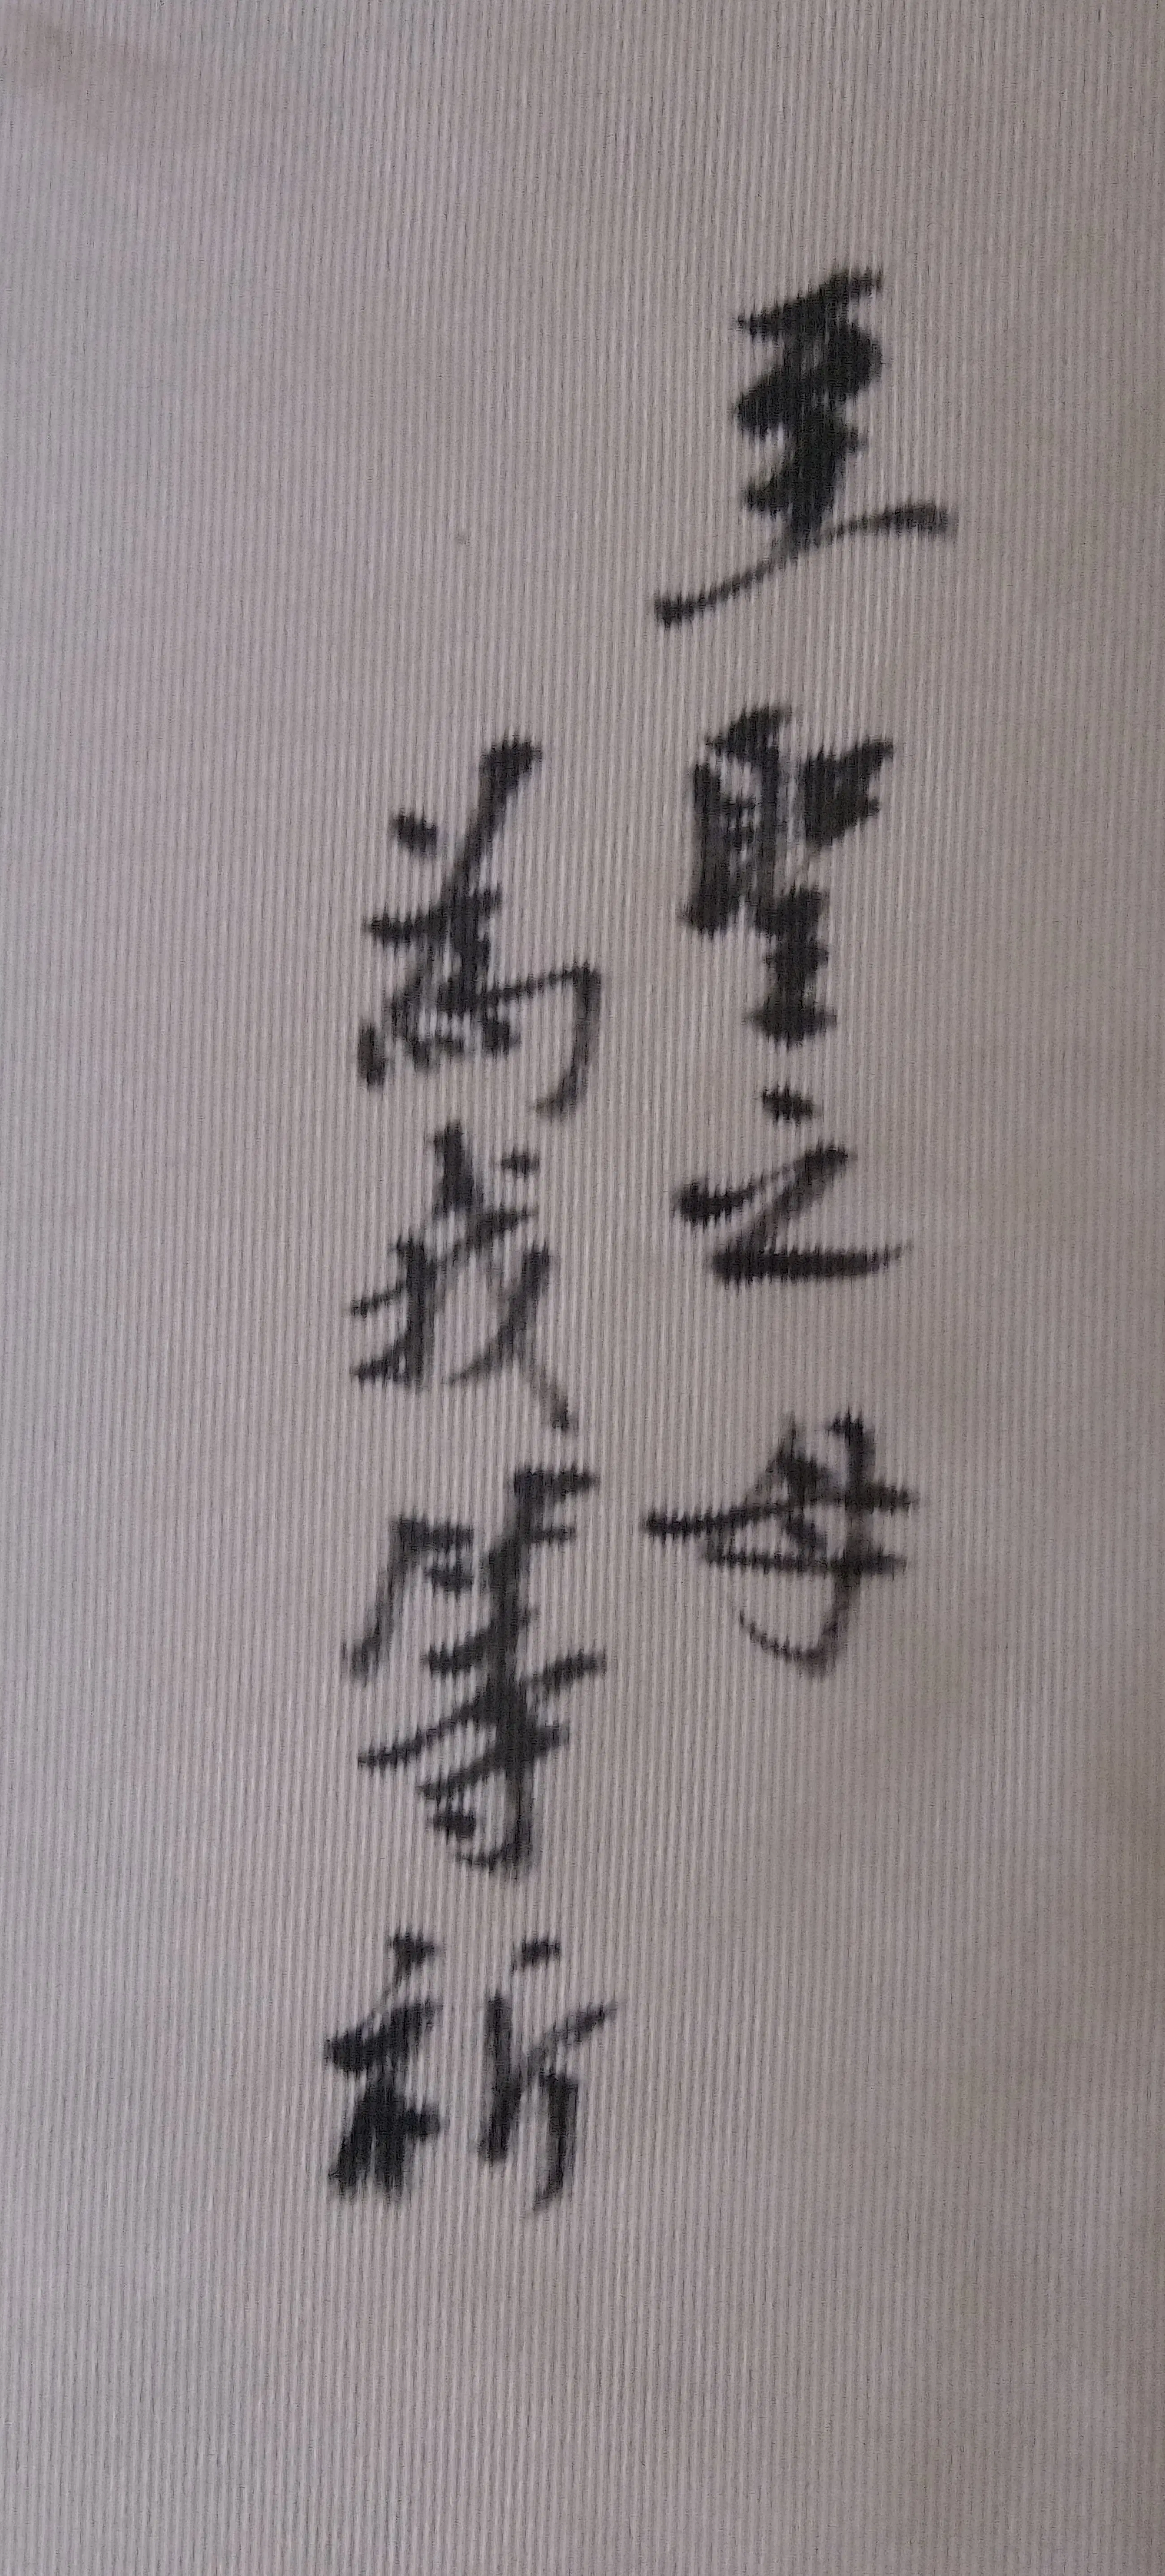 至聖之母
為我等祈